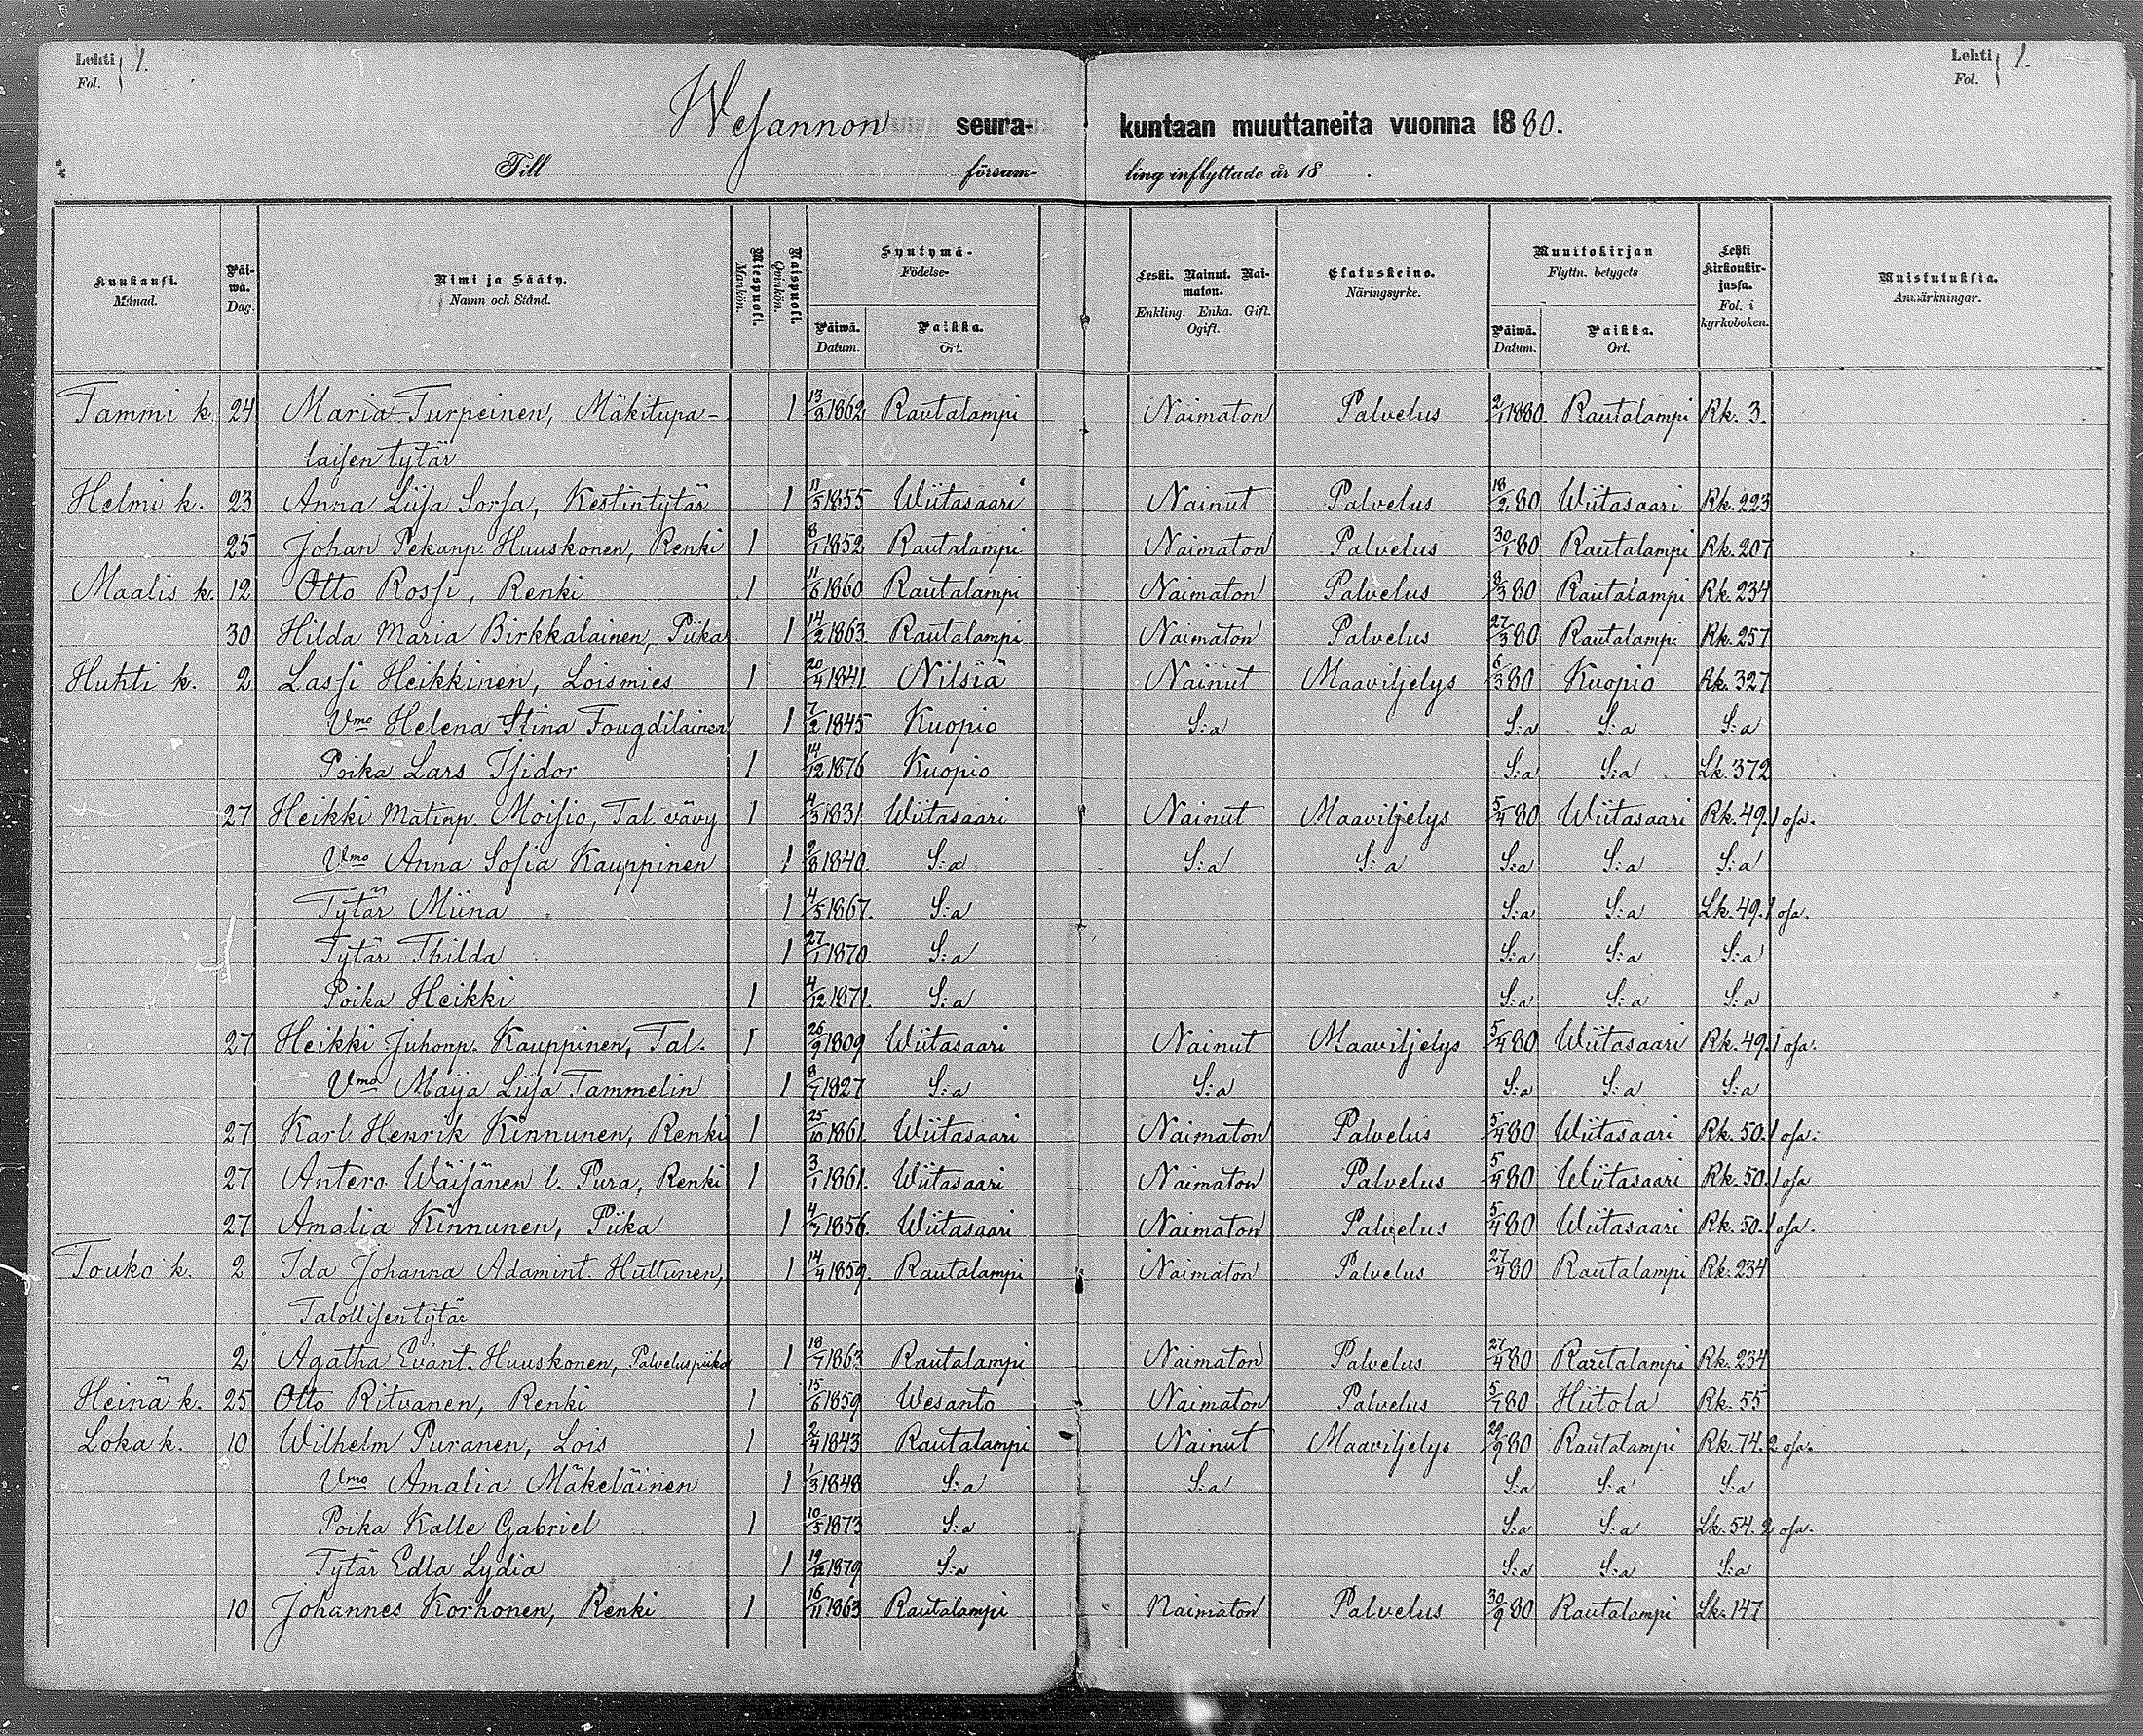 Lehti Fol. 1. Lehti Fol. 1.
Wesannon seura- kuntaan muuttaneita vuonna 1880.
Till försam- ling inflyttade år 18 .
Kuukausi. Månad. Päi-wä. Dag. Nimi ja Sääty. Namn och Stånd. Miespuoli. Mankön. Waispuoli. Qvinkön. Syntymä- Födelse- Leski. Nainut. Nai-maton. Enkling. Enka. Gift. Ogift. Elatuskeino. Näringsyrke. Muuttokirjan Flyttn. betygets Lehti kirkonkir-jassa. Fol. i kyrkoboken. Muistutuksia. Anmärkningar.
Päiwä. Datum. Paikka. Ort. Päiwä. Datum. Paikka. Ort.
Tammi k. 24 Maria Turpeinen, Mäkitupa- 1 13/8 1862 Rautalampi Naimaton Palvelus 2/1 1880. Rautalampi Rk. 3.
laisen tytär
Helmi k. 23 Anna Liisa Sorsa, Kestintytär 1 11/5 1855 Wiitasaari Nainut Palvelus 18/2 80 Wiitasaari Rk. 223
25 Johan Pekanp. Huuskonen, Renki 1 8/1 1852 Rautalampi Naimaton Palvelus 30/1 80 Rautalampi Rk. 207
Maalis k. 12 Otto Rossi, Renki 1 11/6 1860 Rautalampi Naimaton Palvelus 8/3 80 Rautalampi Rk. 234
30 Hilda Maria Birkkalainen, Piika 1 14/2 1863. Rautalampi Naimaton Palvelus 27/3 80 Rautalampi Rk. 257
Huhti k. 2 Lassi Heikkinen, Loismies 1 20/4 1841 Nilsiä Nainut Maaviljelys 6/3 80 Kuopio Rk. 327
Vmo Helena Stina Fougdilainen 1 7/2 1845 Kuopio S:a S:a S:a S:a
Poika Lars Isidor 1 14/12 1876 Kuopio S:a S:a Lk. 372
27 Heikki Matinp. Moisio, Tal. vävy 1 4/3 1831 Wiitasaari Nainut Maaviljelys 5/4 80 Wiitasaari Rk. 49. 1 osa.
Vmo Anna Sofia Kauppinen 1 9/8 1840. S:a S:a S:a S:a S:a S:a
Tytär Miina 1 4/5 1867. S:a S:a S:a Lk. 49. 1 osa.
Tytär Thilda 1 27/1 1870. S:a S:a S:a S:a
Poika Heikki 1 4/12 1871. S:a S:a S:a S:a
27 Heikki Juhonp. Kauppinen, Tal. 1 26/9 1809 Wiitasaari Nainut Maaviljelys 5/4 80 Wiitasaari Rk. 49. 1 osa.
Vmo Maija Liisa Tammelin 1 8/7 1827 S:a S:a S:a S:a S:a
27 Karl Henrik Kinnunen, Renki 1 25/10 1861. Wiitasaari Naimaton Palvelus 5/4 80 Wiitasaari Rk. 50. 1 osa.
27 Antero Wäisänen l. Pura, Renki 1 3/1 1861. Wiitasaari Naimaton Palvelus 5/4 80 Wiitasaari Rk. 50. 1 osa
27 Amalia Kinnunen, Piika 1 4/3 1856. Wiitasaari Naimaton Palvelus 5/4 80 Wiitasaari Rk. 50. 1 osa.
Touko k. 2 Ida Johanna Adamint. Huttunen, 1 14/4 1859. Rautalampi Naimaton Palvelus 27/4 80 Rautalampi Rk. 234
Talollisen tytär
2 Agatha Evant. Huuskonen, Palveluspiika 1 18/7 1863 Rautalampi Naimaton Palvelus 27/4 80 Rautalampi Rk. 234
Heinä k. 25 Otto Ritvanen, Renki 1 15/6 1859 Wesanto Naimaton Palvelus 5/7 80 Hiitola Rk. 55
Loka k. 10 Wilhelm Puranen, Lois 1 2/4 1843 Rautalampi Nainut Maaviljelys 29/9 80 Rautalampi Rk. 74. 2 osa.
Vmo Amalia Mäkeläinen 1 1/3 1848 S:a S:a S:a S:a S:a
Poika Kalle Gabriel 1 10/5 1873 S:a S:a S:a Lk. 54. 2 osa.
Tytär Edla Lydia 1 19/12 1879 S:a S:a S:a S:a
10 Johannes Korhonen, Renki 1 16/11 1863 Rautalampi Naimaton Palvelus 30/9 80 Rautalampi Lk. 147